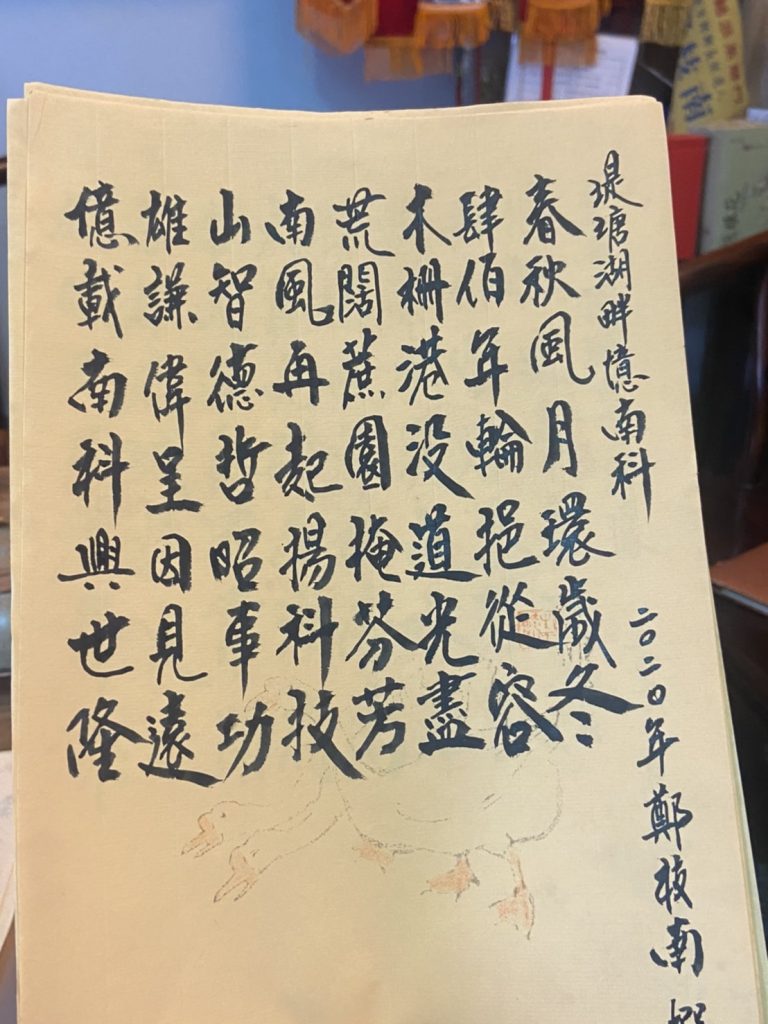 堤塘湖畔憶南科
春秋風月環歲冬
肆伯年輪挹從容
木柵港沒道光盡
荒闊蔗園掩芬芳
南風再起揚科技
山智德哲昭事功
雄謙偉呈因見遠
億載南科興世隆
二〇二〇年鄭枝南